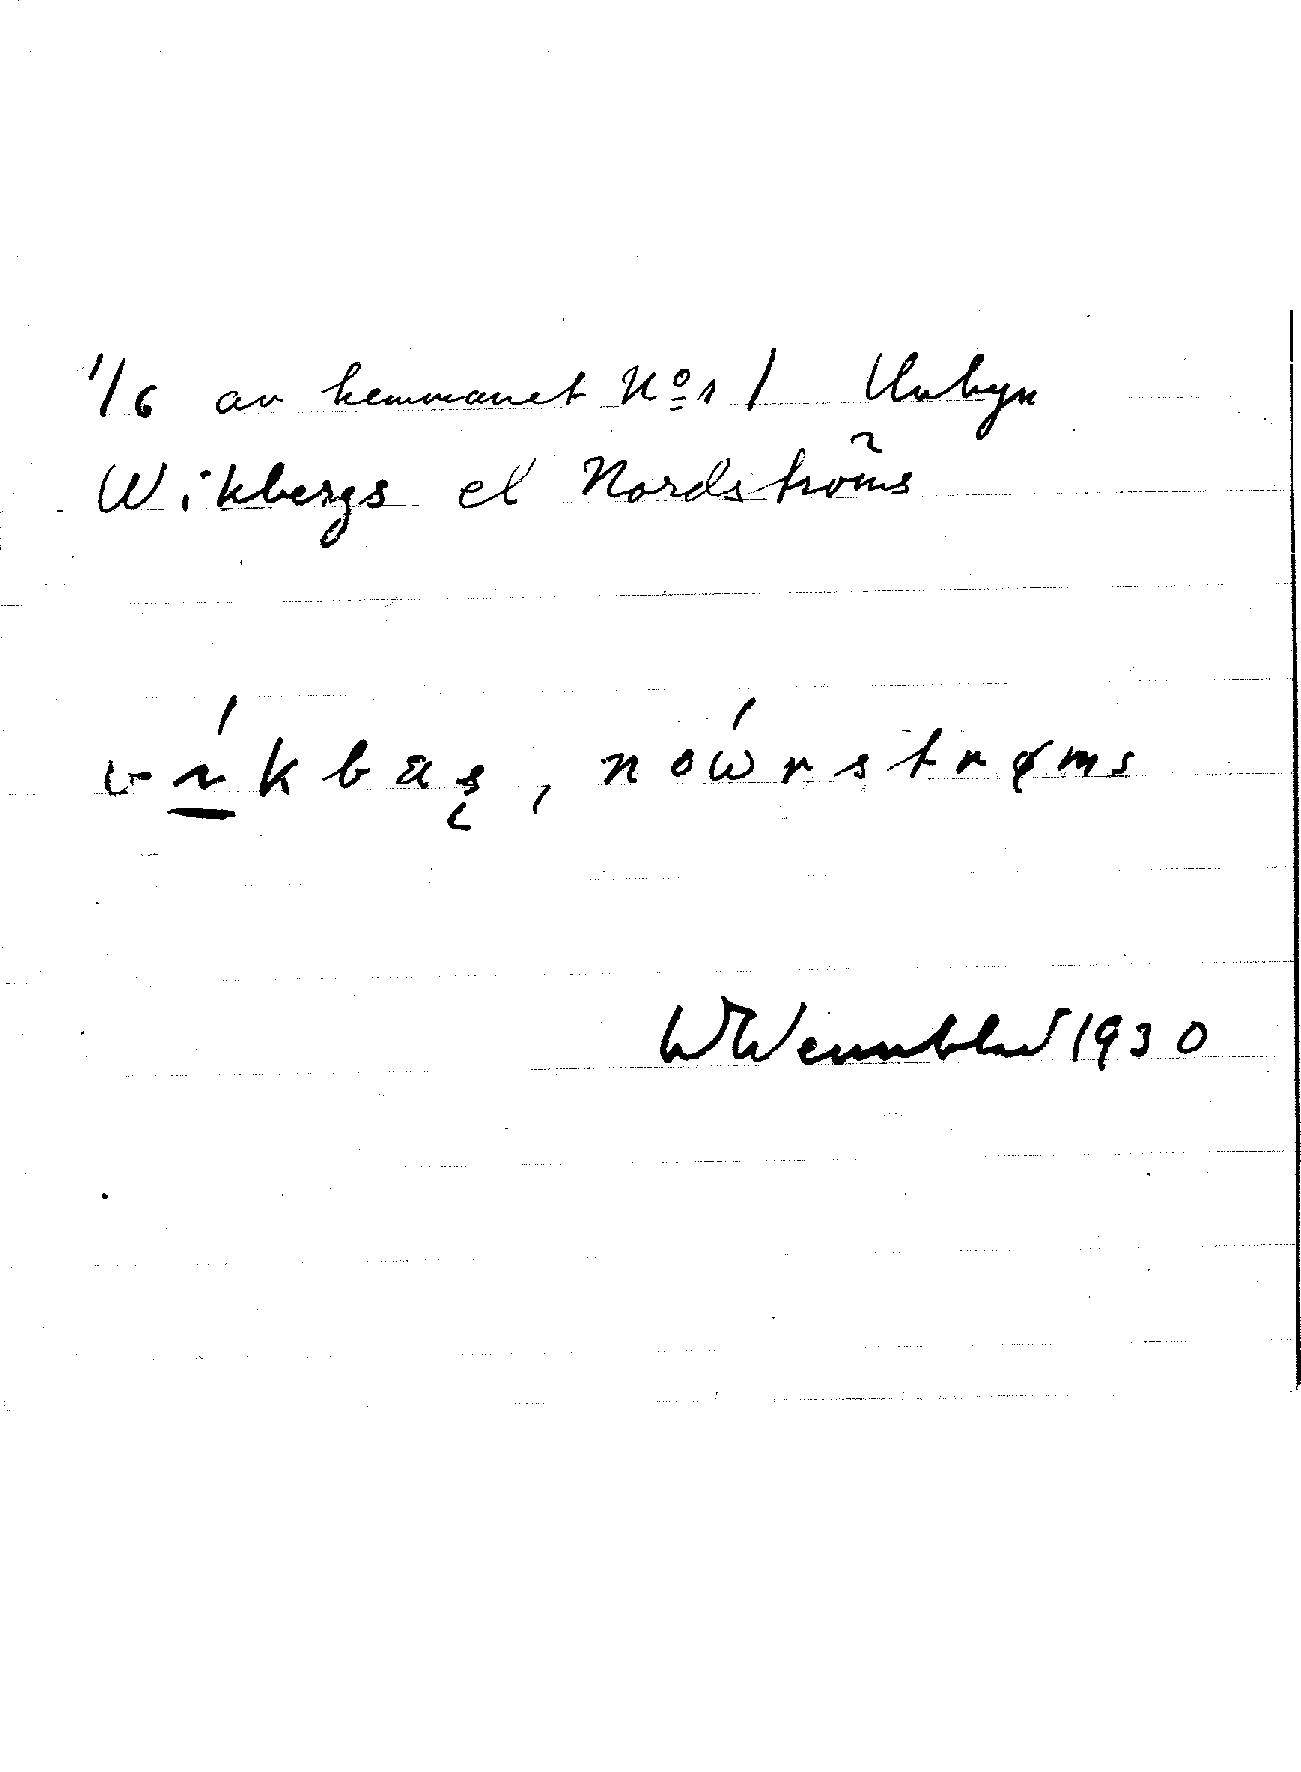 1/6 av hemmanet No 1 / Unbyn
Wikbergs el Nordströms
víkbas, nowrstrøms
W Wennblad 1930